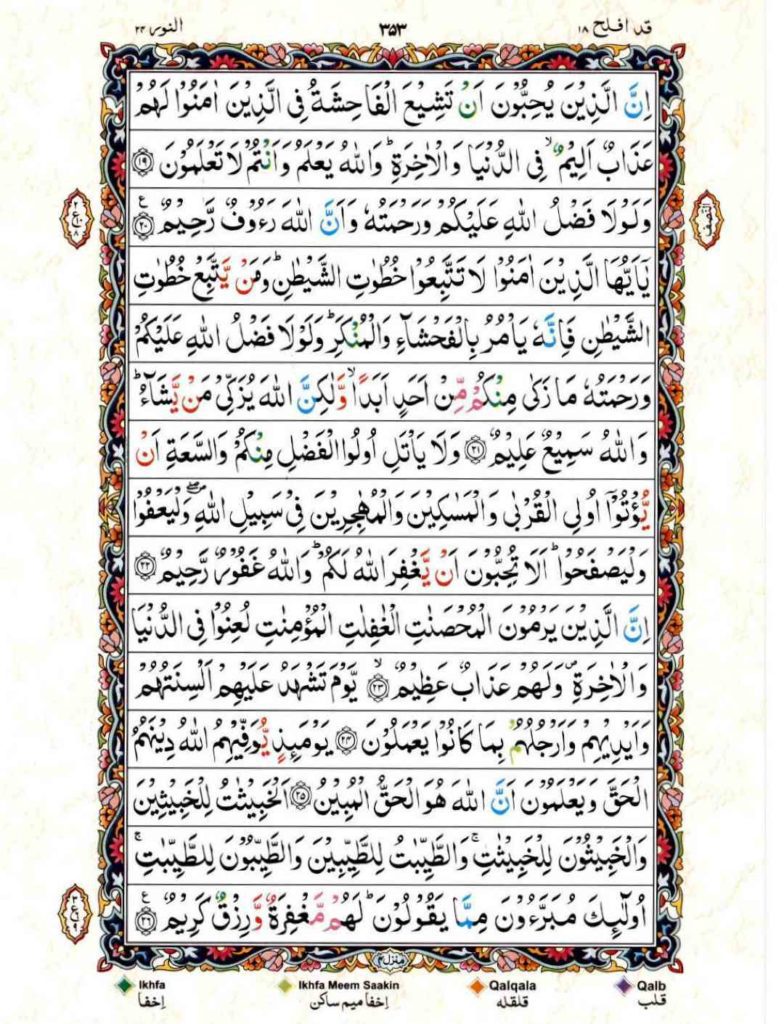 قد افلح ۱۸
۳۵۳
النور ۲۴
اِنَّ الَّذِیْنَ یُحِبُّوْنَ اَنْ تَشِیْعَ الْفَاحِشَةُ فِی الَّذِیْنَ اٰمَنُوْا لَهُمْ
عَذَابٌ اَلِیْمٌ ۙ فِی الدُّنْیَا وَ الْاٰخِرَةِ ؕ وَ اللّٰهُ یَعْلَمُ وَ اَنْتُمْ لَا تَعْلَمُوْنَ ﴿۱۹﴾
وَ لَوْ لَا فَضْلُ اللّٰهِ عَلَیْكُمْ وَ رَحْمَتُهٗ وَ اَنَّ اللّٰهَ رَءُوْفٌ رَّحِیْمٌ ﴿۲۰﴾ ع
یٰۤاَیُّهَا الَّذِیْنَ اٰمَنُوْا لَا تَتَّبِعُوْا خُطُوٰتِ الشَّیْطٰنِ ؕ وَ مَنْ یَّتَّبِعْ خُطُوٰتِ
الشَّیْطٰنِ فَاِنَّهٗ یَاْمُرُ بِالْفَحْشَآءِ وَ الْمُنْكَرِ ؕ وَ لَوْ لَا فَضْلُ اللّٰهِ عَلَیْكُمْ
وَ رَحْمَتُهٗ مَا زَكٰی مِنْكُمْ مِّنْ اَحَدٍ اَبَدًا ۙ وَّ لٰكِنَّ اللّٰهَ یُزَكِّیْ مَنْ یَّشَآءُ ؕ
وَ اللّٰهُ سَمِیْعٌ عَلِیْمٌ ﴿۲۱﴾ وَ لَا یَاْتَلِ اُولُوا الْفَضْلِ مِنْكُمْ وَ السَّعَةِ اَنْ
یُّؤْتُوْۤا اُولِی الْقُرْبٰی وَ الْمَسٰكِیْنَ وَ الْمُهٰجِرِیْنَ فِیْ سَبِیْلِ اللّٰهِ ۪ۖ وَ لْیَعْفُوْا
وَ لْیَصْفَحُوْا ؕ اَلَا تُحِبُّوْنَ اَنْ یَّغْفِرَ اللّٰهُ لَكُمْ ؕ وَ اللّٰهُ غَفُوْرٌ رَّحِیْمٌ ﴿۲۲﴾
اِنَّ الَّذِیْنَ یَرْمُوْنَ الْمُحْصَنٰتِ الْغٰفِلٰتِ الْمُؤْمِنٰتِ لُعِنُوْا فِی الدُّنْیَا
وَ الْاٰخِرَةِ ۪ وَ لَهُمْ عَذَابٌ عَظِیْمٌ ﴿۲۳﴾ ۙ یَّوْمَ تَشْهَدُ عَلَیْهِمْ اَلْسِنَتُهُمْ
وَ اَیْدِیْهِمْ وَ اَرْجُلُهُمْ بِمَا كَانُوْا یَعْمَلُوْنَ ﴿۲۴﴾ یَوْمَىِٕذٍ یُّوَفِّیْهِمُ اللّٰهُ دِیْنَهُمُ
الْحَقَّ وَ یَعْلَمُوْنَ اَنَّ اللّٰهَ هُوَ الْحَقُّ الْمُبِیْنُ ﴿۲۵﴾ اَلْخَبِیْثٰتُ لِلْخَبِیْثِیْنَ
وَ الْخَبِیْثُوْنَ لِلْخَبِیْثٰتِ ۚ وَ الطَّیِّبٰتُ لِلطَّیِّبِیْنَ وَ الطَّیِّبُوْنَ لِلطَّیِّبٰتِ ۚ
اُولٰٓىِٕكَ مُبَرَّءُوْنَ مِمَّا یَقُوْلُوْنَ ؕ لَهُمْ مَّغْفِرَةٌ وَّ رِزْقٌ كَرِیْمٌ ﴿۲۶﴾ ع
النصف
منزل ۴
Ikhfa
اِخفا
Ikhfa Meem Saakin
اِخفا میم ساکن
Qalqala
قلقله
Qalb
قلب